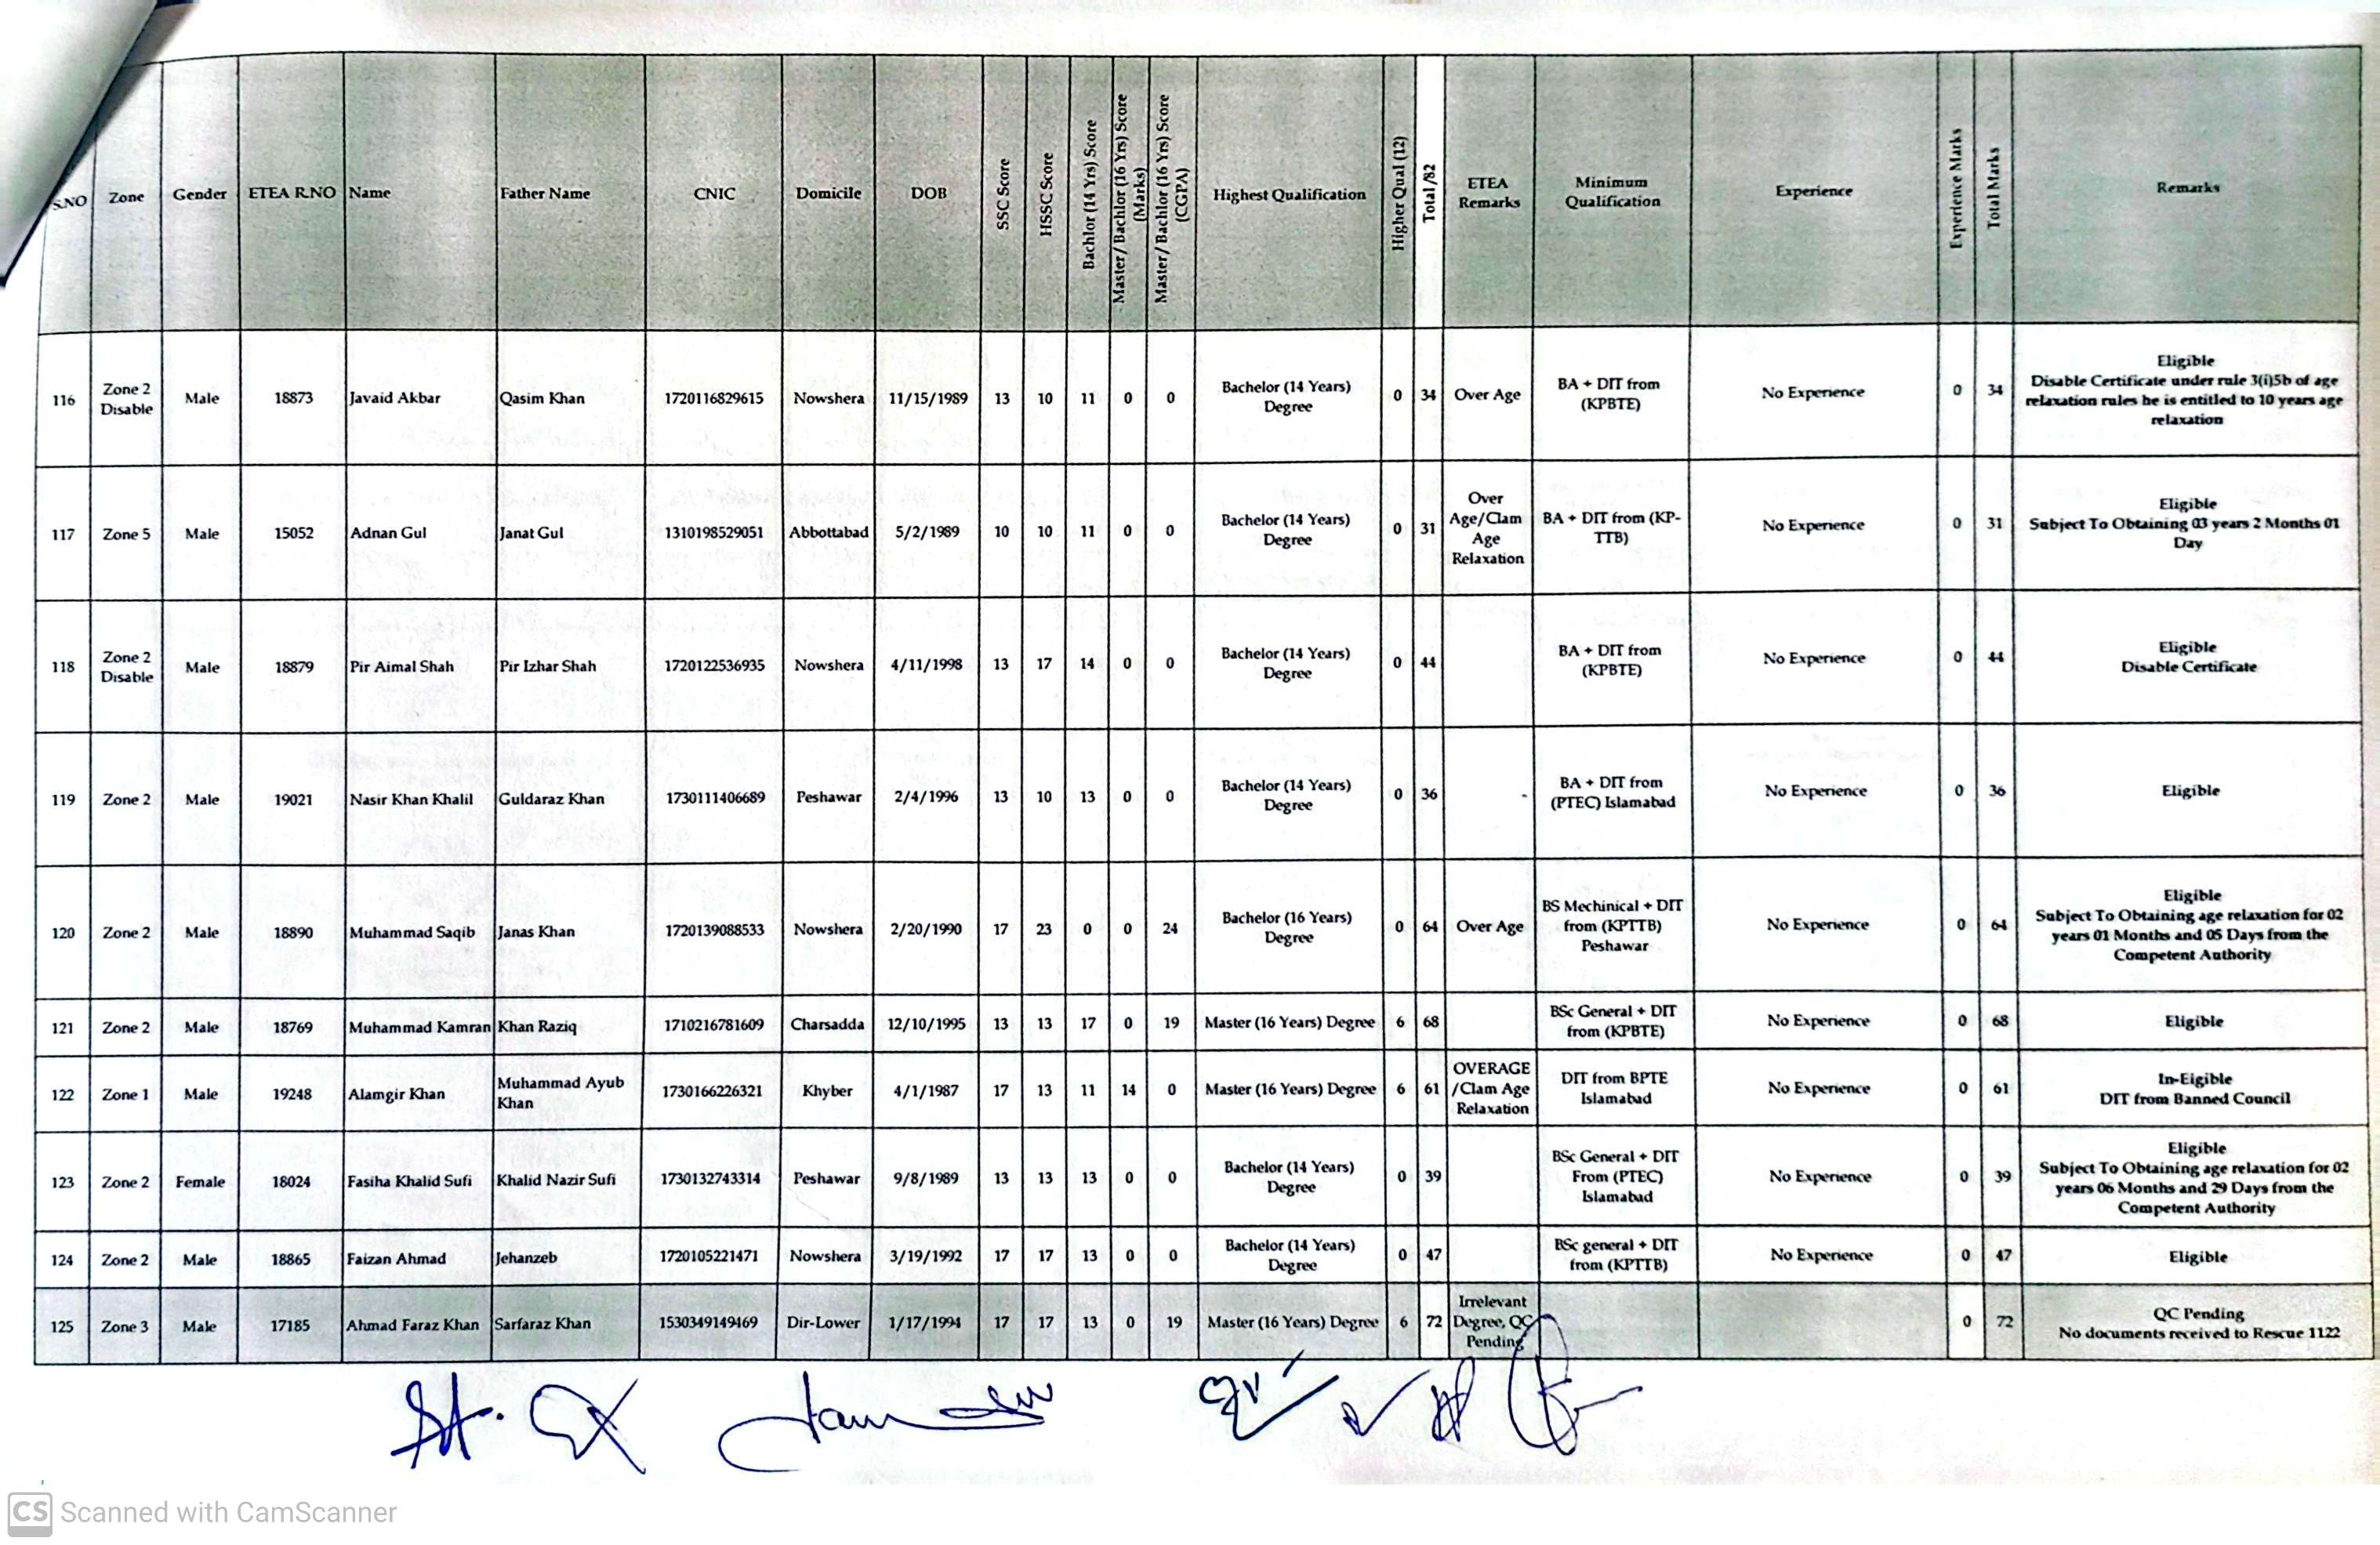 S.NO Zone Gender ETEA R.NO Name Father Name CNIC Domicile DOB SSC Score HSSC Score Bachlor (14 Yrs) Score Master/ Bachlor (16 Yrs) Score (Marks) Master/ Bachlor (16 Yrs) Score (CGPA) Highest Qualification Higher Qual (12) Total /82 ETEA Remarks Minimum Qualification Experience Experience Marks Total Marks Remarks
116 Zone 2 Disable Male 18873 Javaid Akbar Qasim Khan 1720116829615 Nowshera 11/15/1989 13 10 11 0 0 Bachelor (14 Years) Degree 0 34 Over Age BA + DIT from (KPBTE) No Experience 0 34 Eligible Disable Certificate under rule 3(i)5b of age relaxation rules he is entitled to 10 years age relaxation
117 Zone 5 Male 15052 Adnan Gul Janat Gul 1310198529051 Abbottabad 5/2/1989 10 10 11 0 0 Bachelor (14 Years) Degree 0 31 Over Age/Clam Age Relaxation BA + DIT from (KP-TTB) No Experience 0 31 Eligible Subject To Obtaining 03 years 2 Months 01 Day
118 Zone 2 Disable Male 18879 Pir Aimal Shah Pir Izhar Shah 1720122536935 Nowshera 4/11/1998 13 17 14 0 0 Bachelor (14 Years) Degree 0 44 BA + DIT from (KPBTE) No Experience 0 44 Eligible Disable Certificate
119 Zone 2 Male 19021 Nasir Khan Khalil Guldaraz Khan 1730111406689 Peshawar 2/4/1996 13 10 13 0 0 Bachelor (14 Years) Degree 0 36 - BA + DIT from (PTEC) Islamabad No Experience 0 36 Eligible
120 Zone 2 Male 18890 Muhammad Saqib Janas Khan 1720139088533 Nowshera 2/20/1990 17 23 0 0 24 Bachelor (16 Years) Degree 0 64 Over Age BS Mechinical + DIT from (KPTTB) Peshawar No Experience 0 64 Eligible Subject To Obtaining age relaxation for 02 years 01 Months and 05 Days from the Competent Authority
121 Zone 2 Male 18769 Muhammad Kamran Khan Raziq 1710216781609 Charsadda 12/10/1995 13 13 17 0 19 Master (16 Years) Degree 6 68 BSc General + DIT from (KPBTE) No Experience 0 68 Eligible
122 Zone 1 Male 19248 Alamgir Khan Muhammad Ayub Khan 1730166226321 Khyber 4/1/1987 17 13 11 14 0 Master (16 Years) Degree 6 61 OVERAGE /Clam Age Relaxation DIT from BPTE Islamabad No Experience 0 61 In-Eigible DIT from Banned Council
123 Zone 2 Female 18024 Fasiha Khalid Sufi Khalid Nazir Sufi 1730132743314 Peshawar 9/8/1989 13 13 13 0 0 Bachelor (14 Years) Degree 0 39 BSc General + DIT From (PTEC) Islamabad No Experience 0 39 Eligible Subject To Obtaining age relaxation for 02 years 06 Months and 29 Days from the Competent Authority
124 Zone 2 Male 18865 Faizan Ahmad Jehanzeb 1720105221471 Nowshera 3/19/1992 17 17 13 0 0 Bachelor (14 Years) Degree 0 47 BSc general + DIT from (KPTTB) No Experience 0 47 Eligible
125 Zone 3 Male 17185 Ahmad Faraz Khan Sarfaraz Khan 1530349149469 Dir-Lower 1/17/1994 17 17 13 0 19 Master (16 Years) Degree 6 72 Irrelevant Degree, QC Pending 0 72 QC Pending No documents received to Rescue 1122
CS Scanned with CamScanner